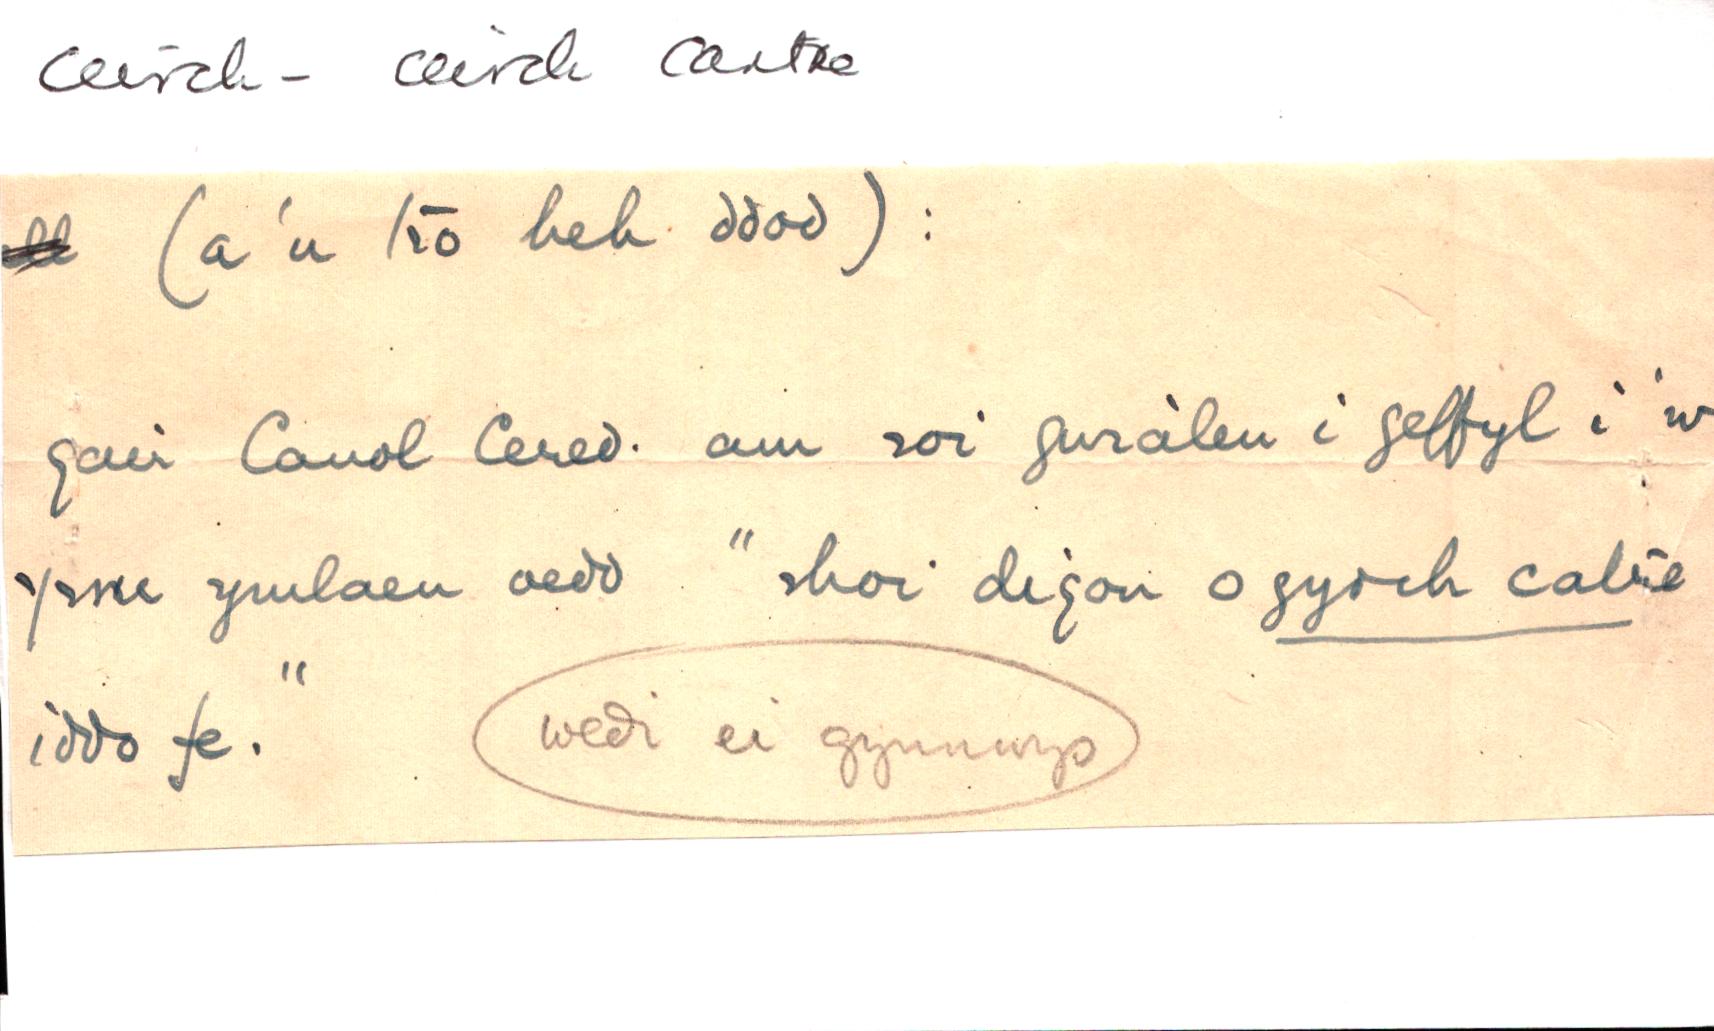 ceirch - ceirch cartre
(a'u trō heb ddod):
gair Canol Cered. am roi gwràlen i geffyl i'w
yrru ymlaen oedd "rhoi digon o gyrch catre
iddo fe."
wedi ei gynnwys